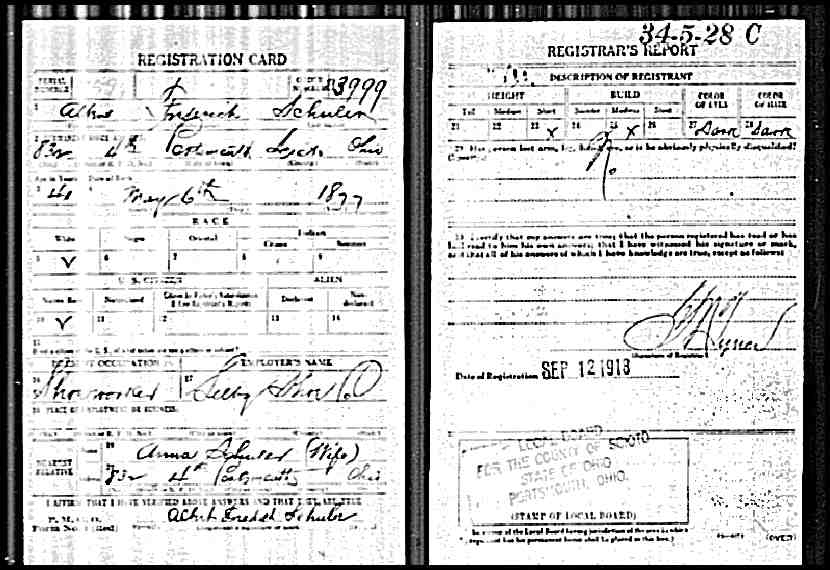 REGISTRATION CARD
SERIAL NUMBER
ORDER NUMBER 3999
Frederick Schuler
832 4th Portsmouth Ohio
Age in Years Date of Birth
41 May 6th 1877
RACE
White Negro Oriental Indian
Citizen
5 V 6 7 8 9
U. S. CITIZEN ALIEN
Declarant Non-declarant
10 V 11 12 13 14
15
PRESENT OCCUPATION EMPLOYER'S NAME
16 Shoeworker 17 Selby Shoe Co
NEAREST RELATIVE
Anna Schuler (Wife)
832 4th Portsmouth Ohio
I AFFIRM THAT I HAVE VERIFIED ABOVE ANSWERS AND THAT THEY ARE TRUE
P. M. G. O.
Form No. 1 (Red)
34-5-28 C
REGISTRAR'S REPORT
DESCRIPTION OF REGISTRANT
HEIGHT BUILD COLOR OF EYES COLOR OF HAIR
Tall Medium Short Slender Medium Stout
21 22 23 X 24 25 X 26 27 28
29 Has person lost arm, leg, hand, eye, or is he obviously physically disqualified?
(Specify.)
30 I certify that my answers are true; that the person registered has read or has
had read to him his own answers; that I have witnessed his signature or mark,
and that all of his answers of which I have knowledge are true, except as follows:
(Signature of Registrar)
Date of Registration SEP 12 1918
LOCAL BOARD
FOR THE COUNTY OF SCIOTO
STATE OF OHIO
PORTSMOUTH, OHIO.
(STAMP OF LOCAL BOARD)
(The stamp of the Local Board having jurisdiction of the area in which
the registrant has his permanent home shall be placed in this box.)
(OVER)